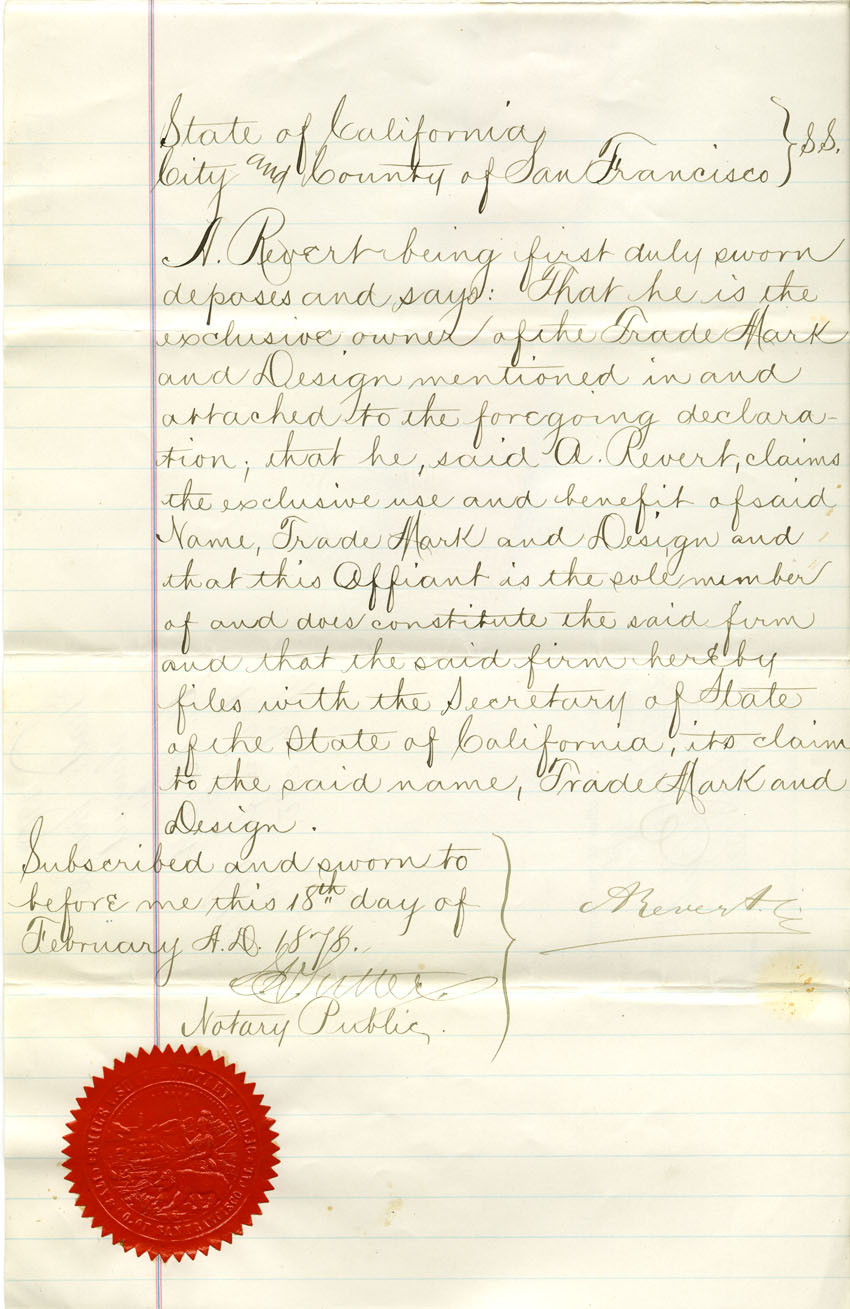 State of California } S.S.
City and County of San Francisco
A. Revert being first duly sworn
deposes and says: That he is the
exclusive owner of the Trade Mark
and Design mentioned in and
attached to the foregoing declara-
tion; that he, said A. Revert, claims
the exclusive use and benefit of said
Name, Trade Mark and Design and
that this Affiant is the sole member
of and does constitute the said firm
and that the said firm hereby
files with the Secretary of State
of the State of California, its claim
to the said name, Trade Mark and
Design.
Subscribed and sworn to
before me this 18th day of
February A.D. 1878.
A Revert
Notary Public.
NOTARY PUBLIC
CO. OF SAN FRANCISCO CAL